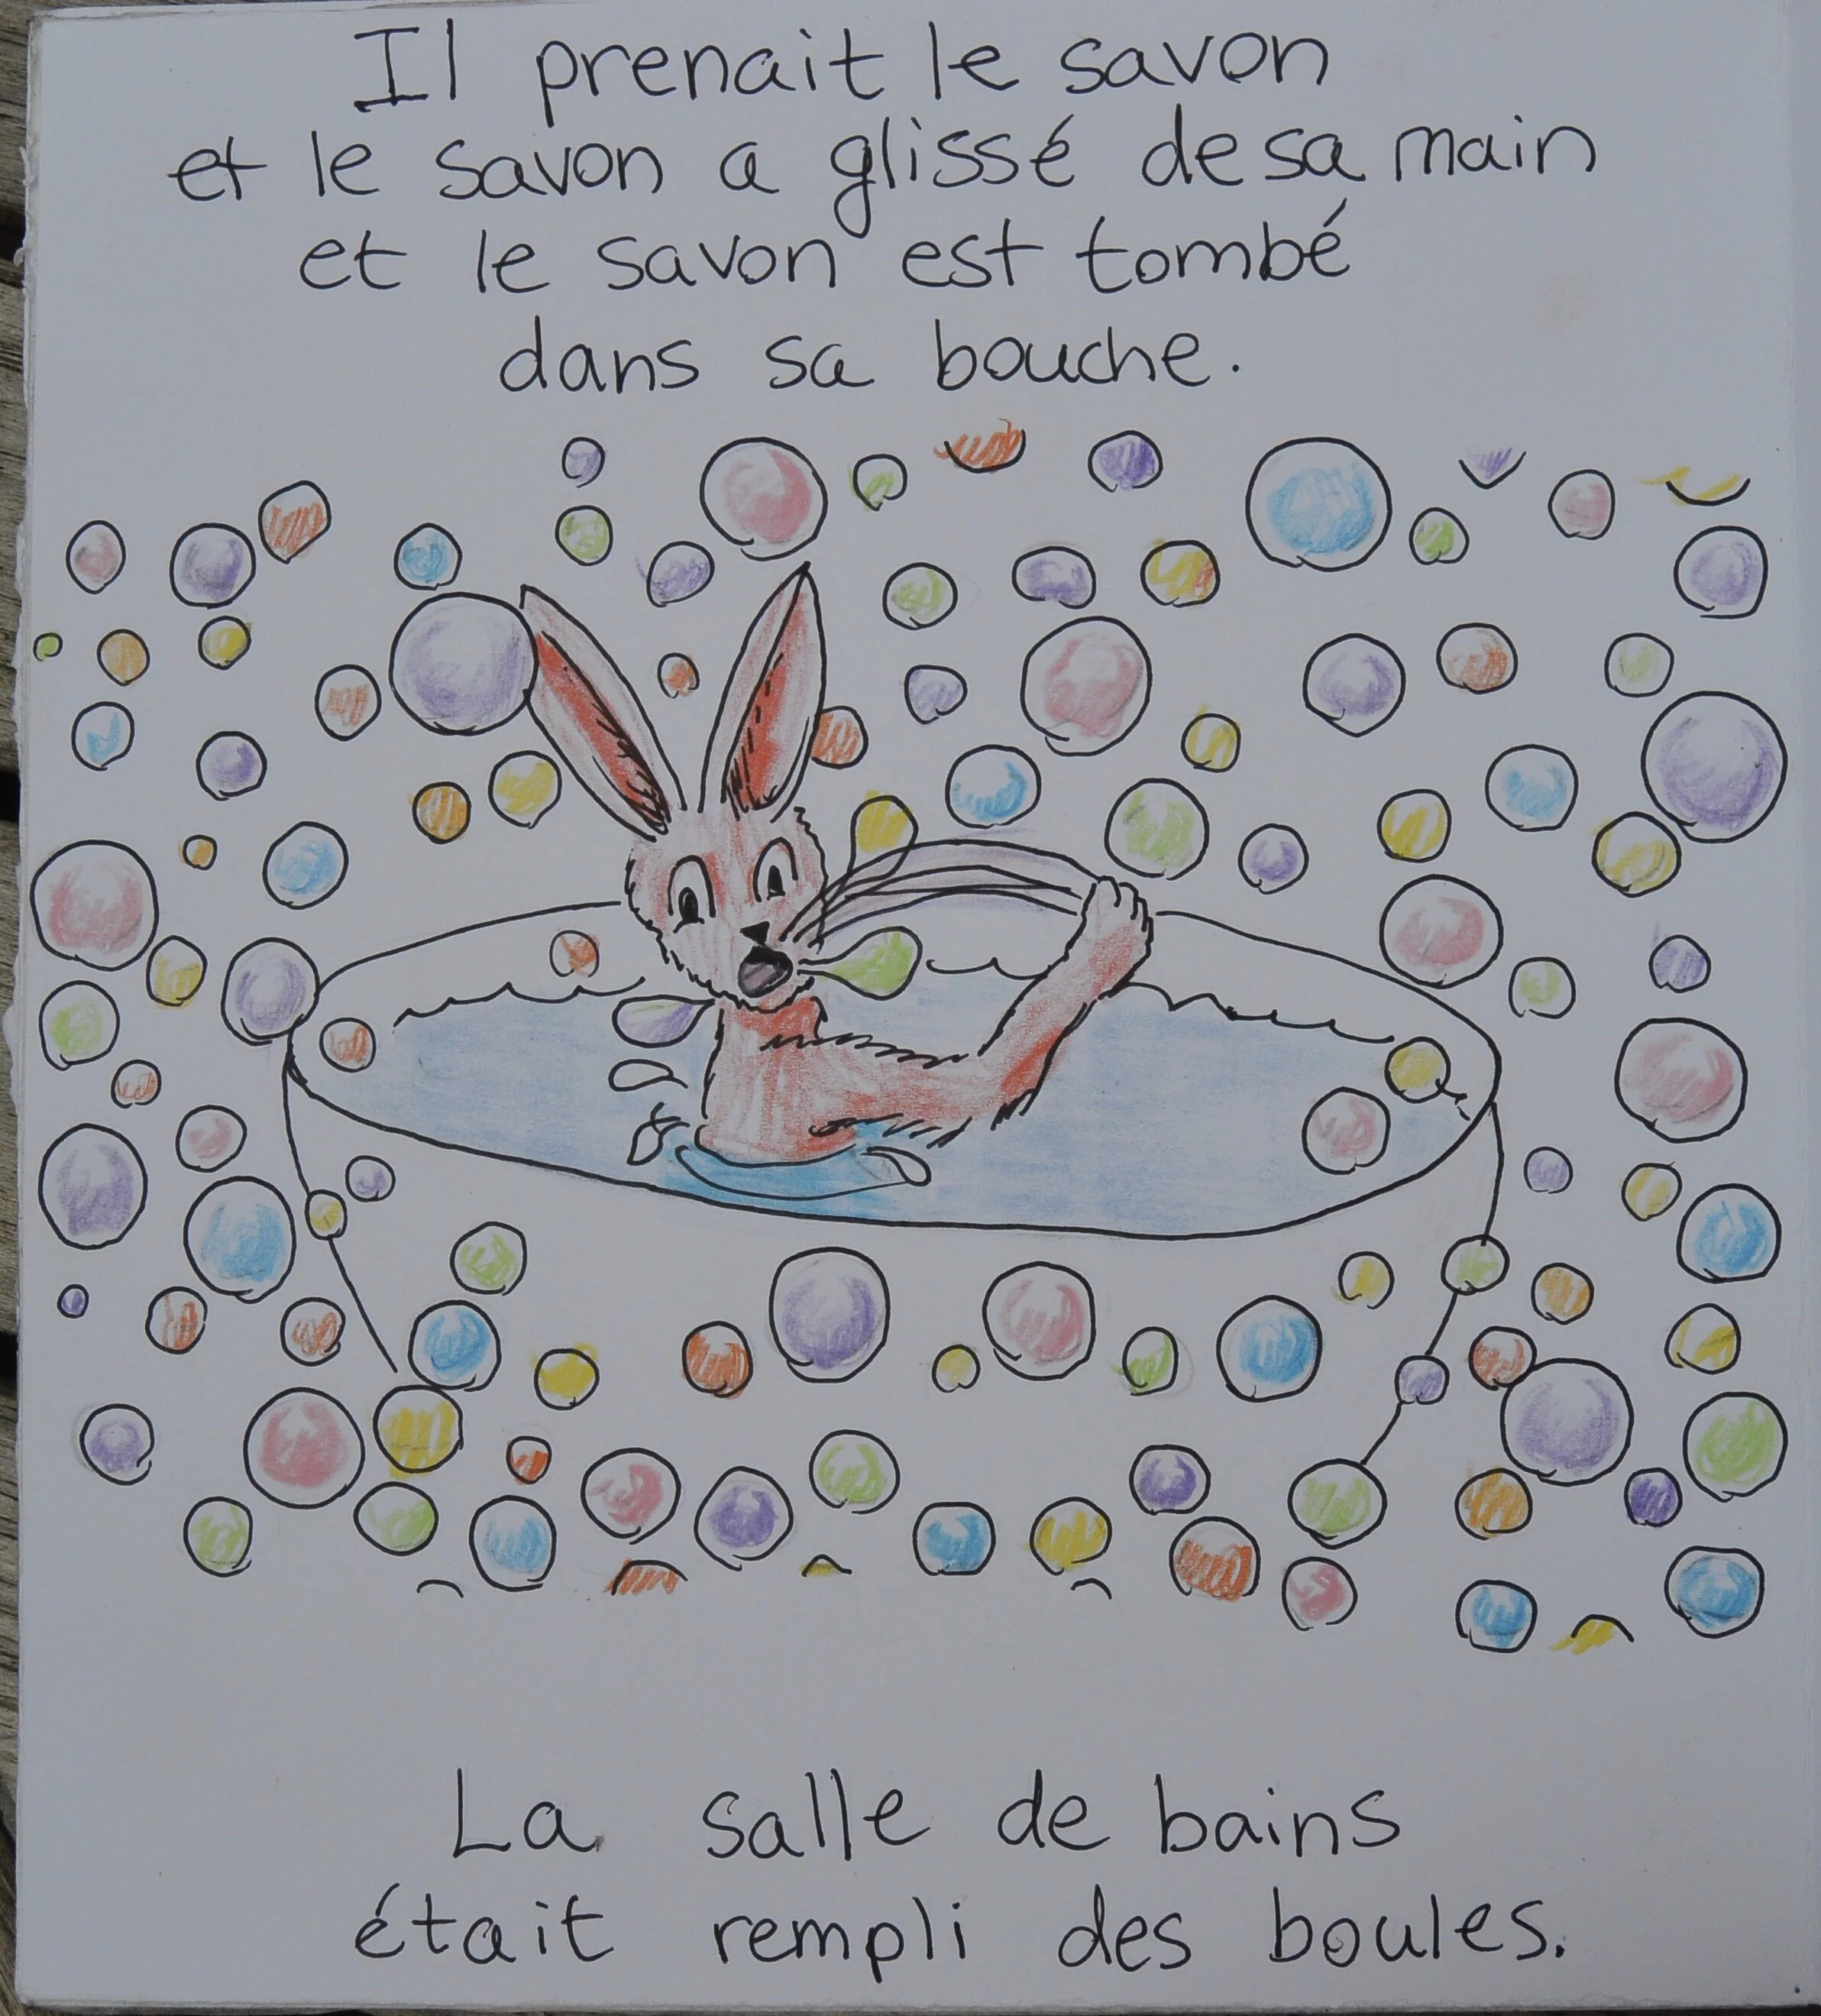 Il prenait le savon
et le savon a glissé de sa main
et le savon est tombé
dans sa bouche.
La salle de bains
était rempli des boules.